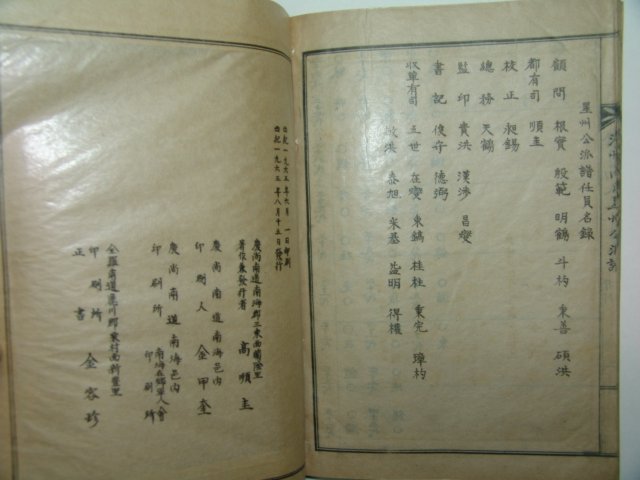 星州公派譜任員名錄
顧問 根實 殷範 明鶴 斗杓 秉善 碩洪
都有司 順圭
校正 昶錫
總務 天鶴
監印 貴洪 漢涉 昌燮
書記 俊守 德弼
收單有司 五世 在燮 東鎬 桂柱 秉完 璋杓
洪 泰旭 采基 益明 得權
西紀一九六五年六月 一日印刷
西紀一九六五年八月十五日發行
慶尙南道南海郡三東面蘭陰里
著作兼發行者 高順圭
慶尙南道南海邑內
印刷人 金甲奎
慶尙南道南海邑內
印刷所 南海在鄕軍人會印刷所
全羅南道 郡 村面新豊里
印刷所
正書 金容珍